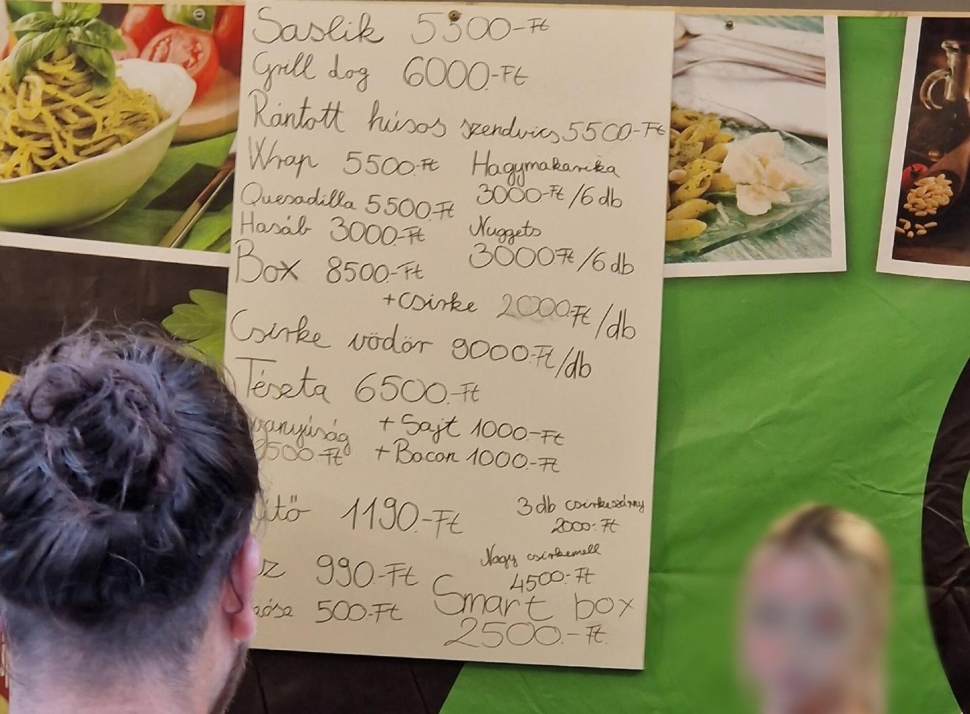 Saslik 5500-Ft
Grill dog 6000-Ft
Rántott húsos szendvics 5500-Ft
Wrap 5500-Ft
Hagymakarika
3000-Ft/6 db
Quesadilla 5500-Ft
Hasáb 3000-Ft
Nuggets
3000Ft/6 db
Box 8500-Ft
+csirke 2000Ft/db
Csirke vödör 9000-Ft/db
Tészta 6500-Ft
vanyúság
500-Ft
+ Sajt 1000-Ft
+ Bacon 1000-Ft
ító 1190-Ft
3 db csirkeszárny
2000-Ft
z 990-Ft
Nagy csirkemell
4500-Ft
500-Ft
Smart box
2500.-Ft.